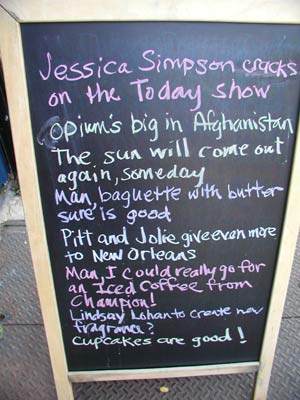 Jessica Simpson cracks
on the Today show
Opium's big in Afghanistan
The sun will come out
again, someday
Man, baguette with butter
sure is good
Pitt and Jolie give even more
to New Orleans
Man, I could really go for
an Iced Coffee from
Champion!
Lindsay Lohan to create new
fragrance?
Cupcakes are good!